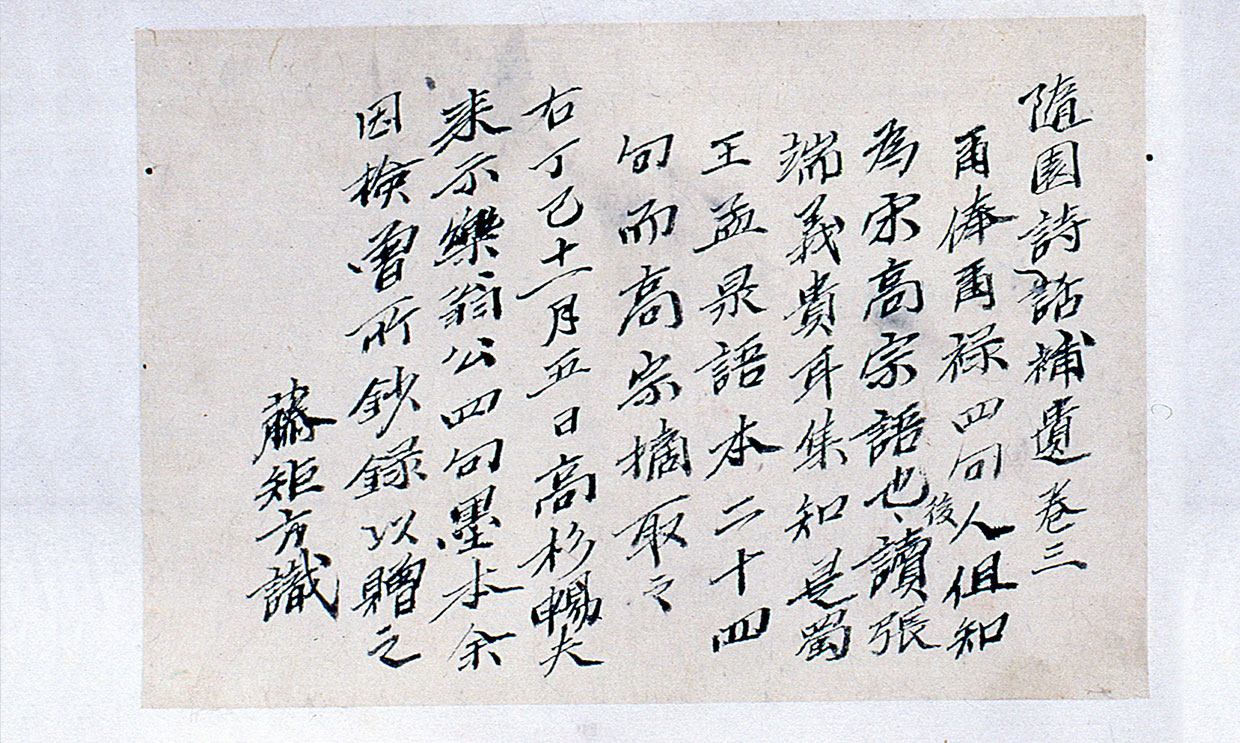 隨園詩話補遺卷三
爾俸爾祿四句人但知
為宋高宗語也後讀張
端義貴耳集知是蜀
王孟昶語本二十四
句而高宗摘取之
右丁巳十一月五日高杉暢夫
来示樂翁公四句墨本余
因檢曽所鈔録以贈之
藤矩方識